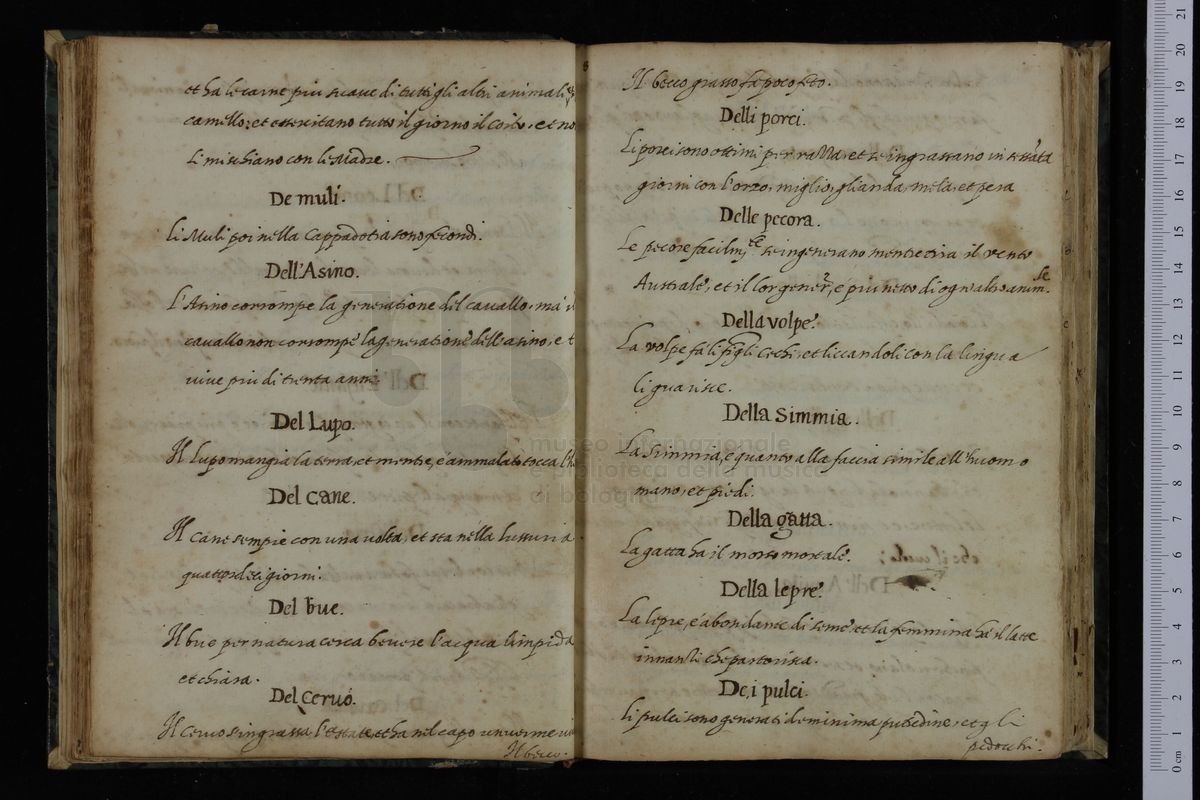 et ha le carne piu suave di tutti gli altri animali
camillo; et essercitano tutto il giorno il coito, et no
si mischiano con li Madre.
De muli.
Li Muli poi nella Cappadotia sono fecondi.
Dell'Asino.
L'Asino corrompe la generatione del cavallo, mà il
cavallo non corrompe la generatione dell'asino, e
vive piu di trenta anni
Del Lupo.
Il Lupo mangia la terra, et mentre, è ammalato tocca
Del Cane.
Il Cane sempre con una volta, et sta nella lussuria
quattordeci giorni.
Del bue.
Il bue per natura cerca bevere l'acqua limpida
et chiara.
Del Cervo.
Il Cervo s'ingrassa l'estate et ha nel capo un verme
Il becco.
Il becco grasso fà poco feto.
Delli porci.
Li porci sono ottimi per razza, et se ingrassano in sessãta
giorni con l'orzo, miglio, glianda, mela, et pera
Delle pecora.
Le pecore facilmte se ingenerano mentre tira il vento
Australe, et il lor gener, e piu netto di ogn'altro anim.
Della volpe.
La volpe fà li figli cechi, et liccandoli con la lingua
li guarisce.
Della Simmia.
La Simmia, e quanto alla faccia simile all'huomo
mano, et piedi.
Della gatta.
La gatta ha il morso mortale.
Della lepre.
La lepre, è abondante di seme et la femmina hà il latte
innanti che partorisca.
De i pulci.
Li pulci sono generati de minima putredine, et gli
pedocchi.
museo internazionale
e biblioteca della musica
di bologna
0 cm 1 2 3 4 5 6 7 8 9 10 11 12 13 14 15 16 17 18 19 20 21